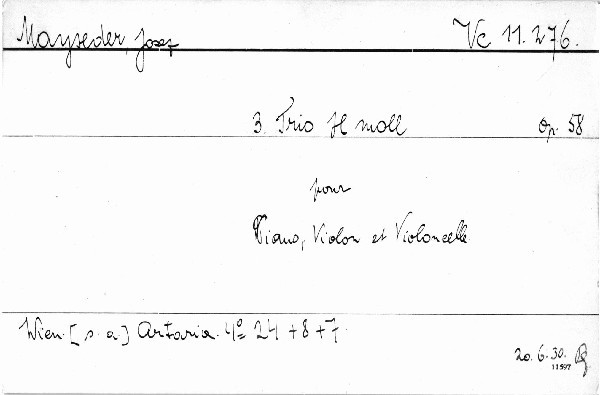 Mayseder, Josef Vc 11.276.
3. Trio H moll Op. 58
pour
Piano, Violon et Violoncelle
Wien. [s. a.] Artaria. 4º 24 + 8 + 7.
20. 6. 30.
11597